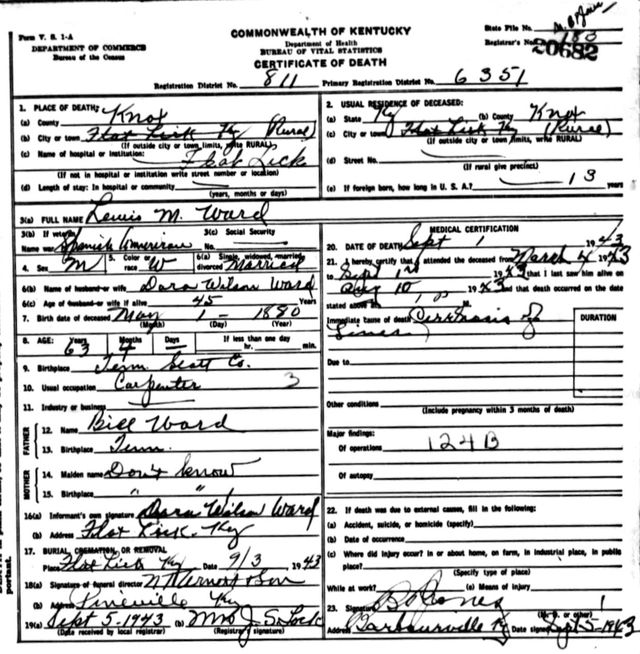 Form V. S. 1-A
DEPARTMENT OF COMMERCE
Bureau of the Census
COMMONWEALTH OF KENTUCKY
Department of Health
BUREAU OF VITAL STATISTICS
CERTIFICATE OF DEATH
State File No.
Registrar's No. 180
20682
Registration District No. 811 Primary Registration District No. 6351
1. PLACE OF DEATH:
(a) County Knox
(b) City or town Flat Lick Ky (Rural)
(If outside city or town limits, write RURAL)
(c) Name of hospital or institution: Flat Lick
(If not in hospital or institution write street number or location)
(d) Length of stay: In hospital or community
(years, months or days)
2. USUAL RESIDENCE OF DECEASED:
(a) State Ky (b) County Knox
(c) City or town Flat Lick Ky (Rural)
(If outside city or town limits, write RURAL)
(d) Street No.
(If rural give precinct)
(e) If foreign born, how long in U. S. A.? 13 years
3(a) FULL NAME Lewis M. Ward
3(b) If veteran Name war Spanish American
3(c) Social Security No.
4. Sex M 5. Color or race W 6(a) Single, widowed, married, divorced Married
6(b) Name of husband or wife Dora Wilson Ward
6(c) Age of husband or wife if alive 45 Years
7. Birth date of deceased May 1 - 1880
(Month) (Day) (Year)
8. AGE: Years 63 Months 4 Days — If less than one day hr. min.
9. Birthplace Tenn Scott Co.
10. Usual occupation Carpenter 3
11. Industry or business
FATHER
12. Name Bill Ward
13. Birthplace Tenn.
MOTHER
14. Maiden name Don't know
15. Birthplace " "
16(a) Informant's own signature Dora Wilson Ward
(b) Address Flat Lick. Ky
17. BURIAL, CREMATION, OR REMOVAL
Place Flat Lick Ky Date 9/3 1943
18(a) Signature of funeral director
(b) Address Pineville Ky
19(a) Sept 5-1943 (b) Mrs J. S. Lock
(Date received by local registrar) (Registrar's signature)
MEDICAL CERTIFICATION
20. DATE OF DEATH Sept 1 1943
21. I hereby certify that I attended the deceased from March 4 1943
Sept 1st 1943 that I last saw him alive on
Aug 10, 1943 and that death occurred on the date
stated above at
Immediate cause of death Cirrhosis of
Liver
DURATION
Due to
Other conditions
(Include pregnancy within 3 months of death)
Major findings:
Of operations 124B
Of autopsy
22. If death was due to external causes, fill in the following:
(a) Accident, suicide, or homicide (specify)
(b) Date of occurrence
(c) Where did injury occur? in or about home, on farm, in industrial place, in public
place?
(Specify type of place)
While at work? (e) Means of injury
23. Signature B Jones
(M. D. or other)
Address Barbourville Ky Date signed Sept 5-1943
portant.